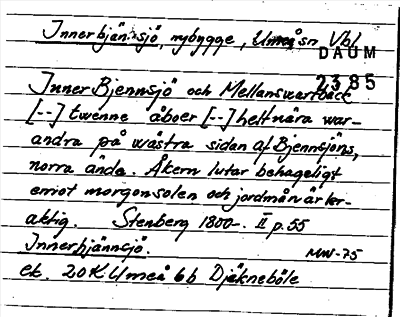 Innerbjännsjö, nybygge, Umeå sn Vbl
DAUM
2385
Inner Bjennsjö och Mellanswartbäck
[--] twenne åboer [--] helt nära war-
andra på wästra sidan af Bjennsjöns,
norra ända. Åkern lutar behageligt
emot morgonsolen och jordmån är ler-
aktig. Stenberg 1800-. II p.55
Innerbjännsjö. MW-75
ek. 20 K Umeå 6b Djäkneböle